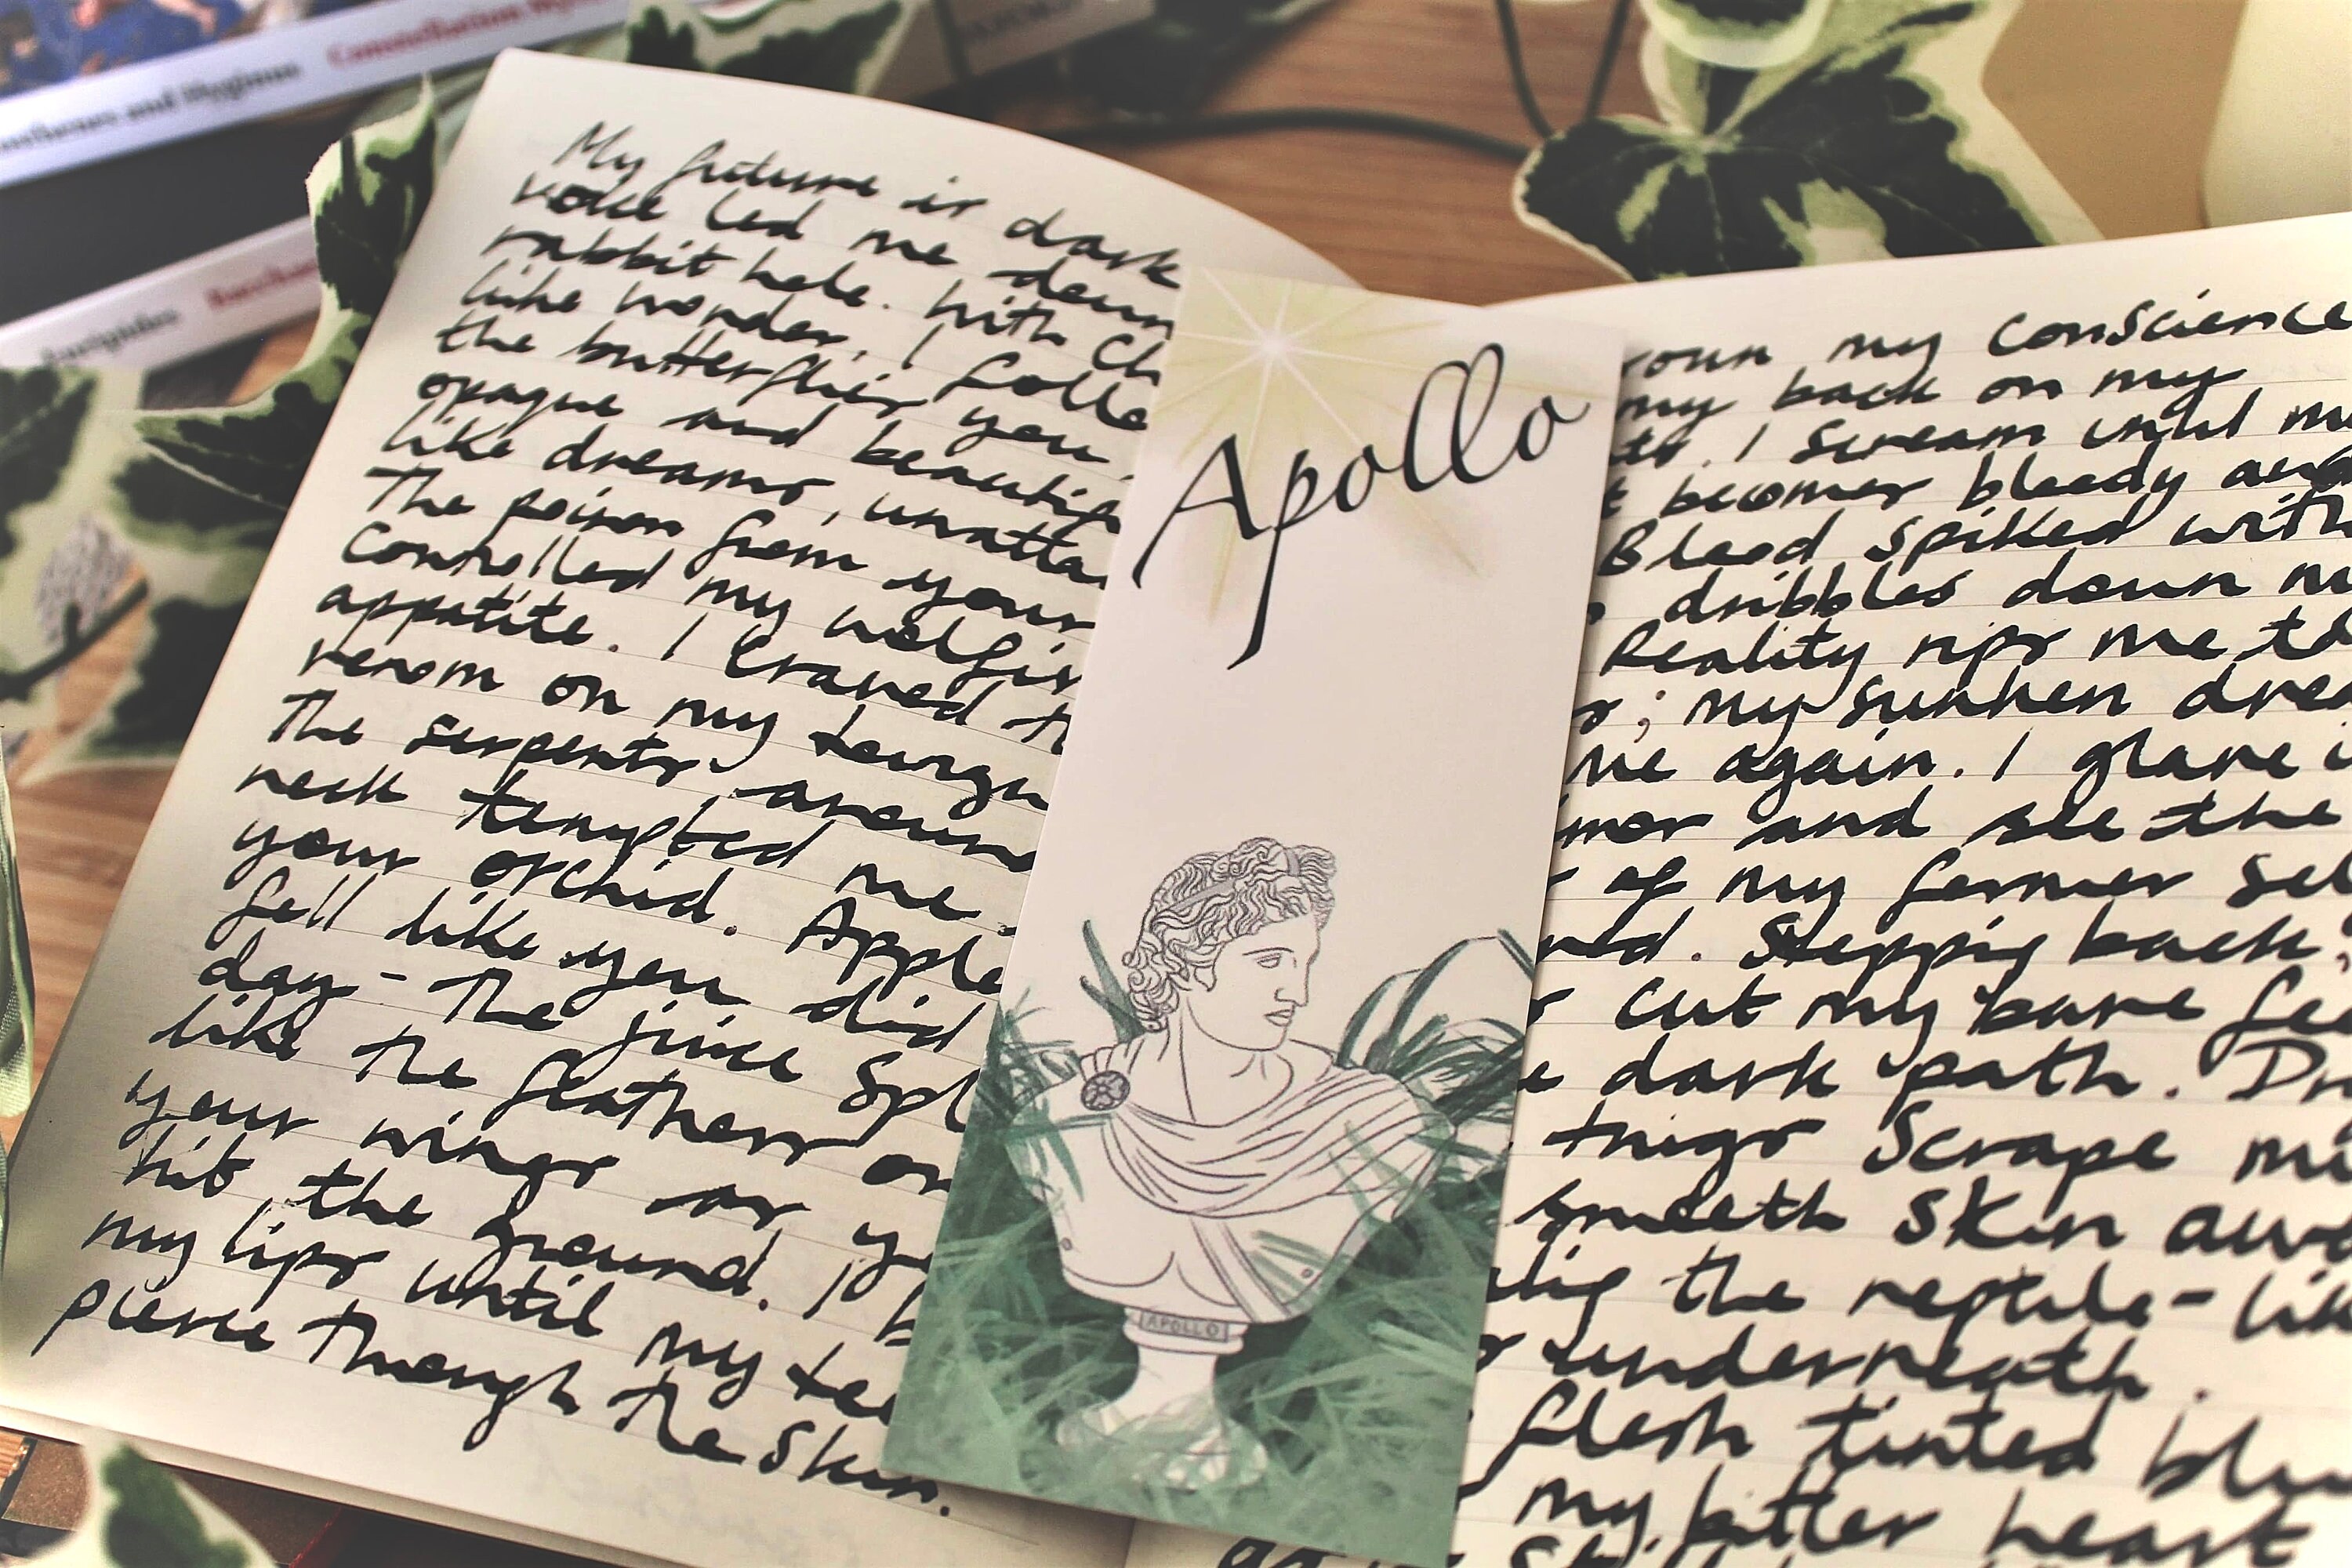 Constellation
and Hyginus
My future is dark
voice led me down
rabbit hole. With Ch
like wonder, I follo
the butterflies you
opaque and beautif
like dreams, unatta
The poison from your
controlled my wolfis
appetite. I craved t
venom on my tongu
The serpents around
neck tempted me
your orchid. Apple
fell like you did
day - The juice spl
like the feathers on
your wings as yo
hit the ground. I b
my lips until my tee
pierce through the skin.
Apollo
APOLLO
rown my conscience
my back on my
to. I scream until m
t becomes bloody and
Blood spiked with
dribbles down m
Reality rips me to
s; my sunken dre
me again. I glare i
mor and see the
r of my former sel
nd. Stepping back,
r cut my bare fee
e dark path. Dr
twigs scrape m
smooth skin awa
the reptile-lik
underneath.
flesh tinted blu
my bitter heart